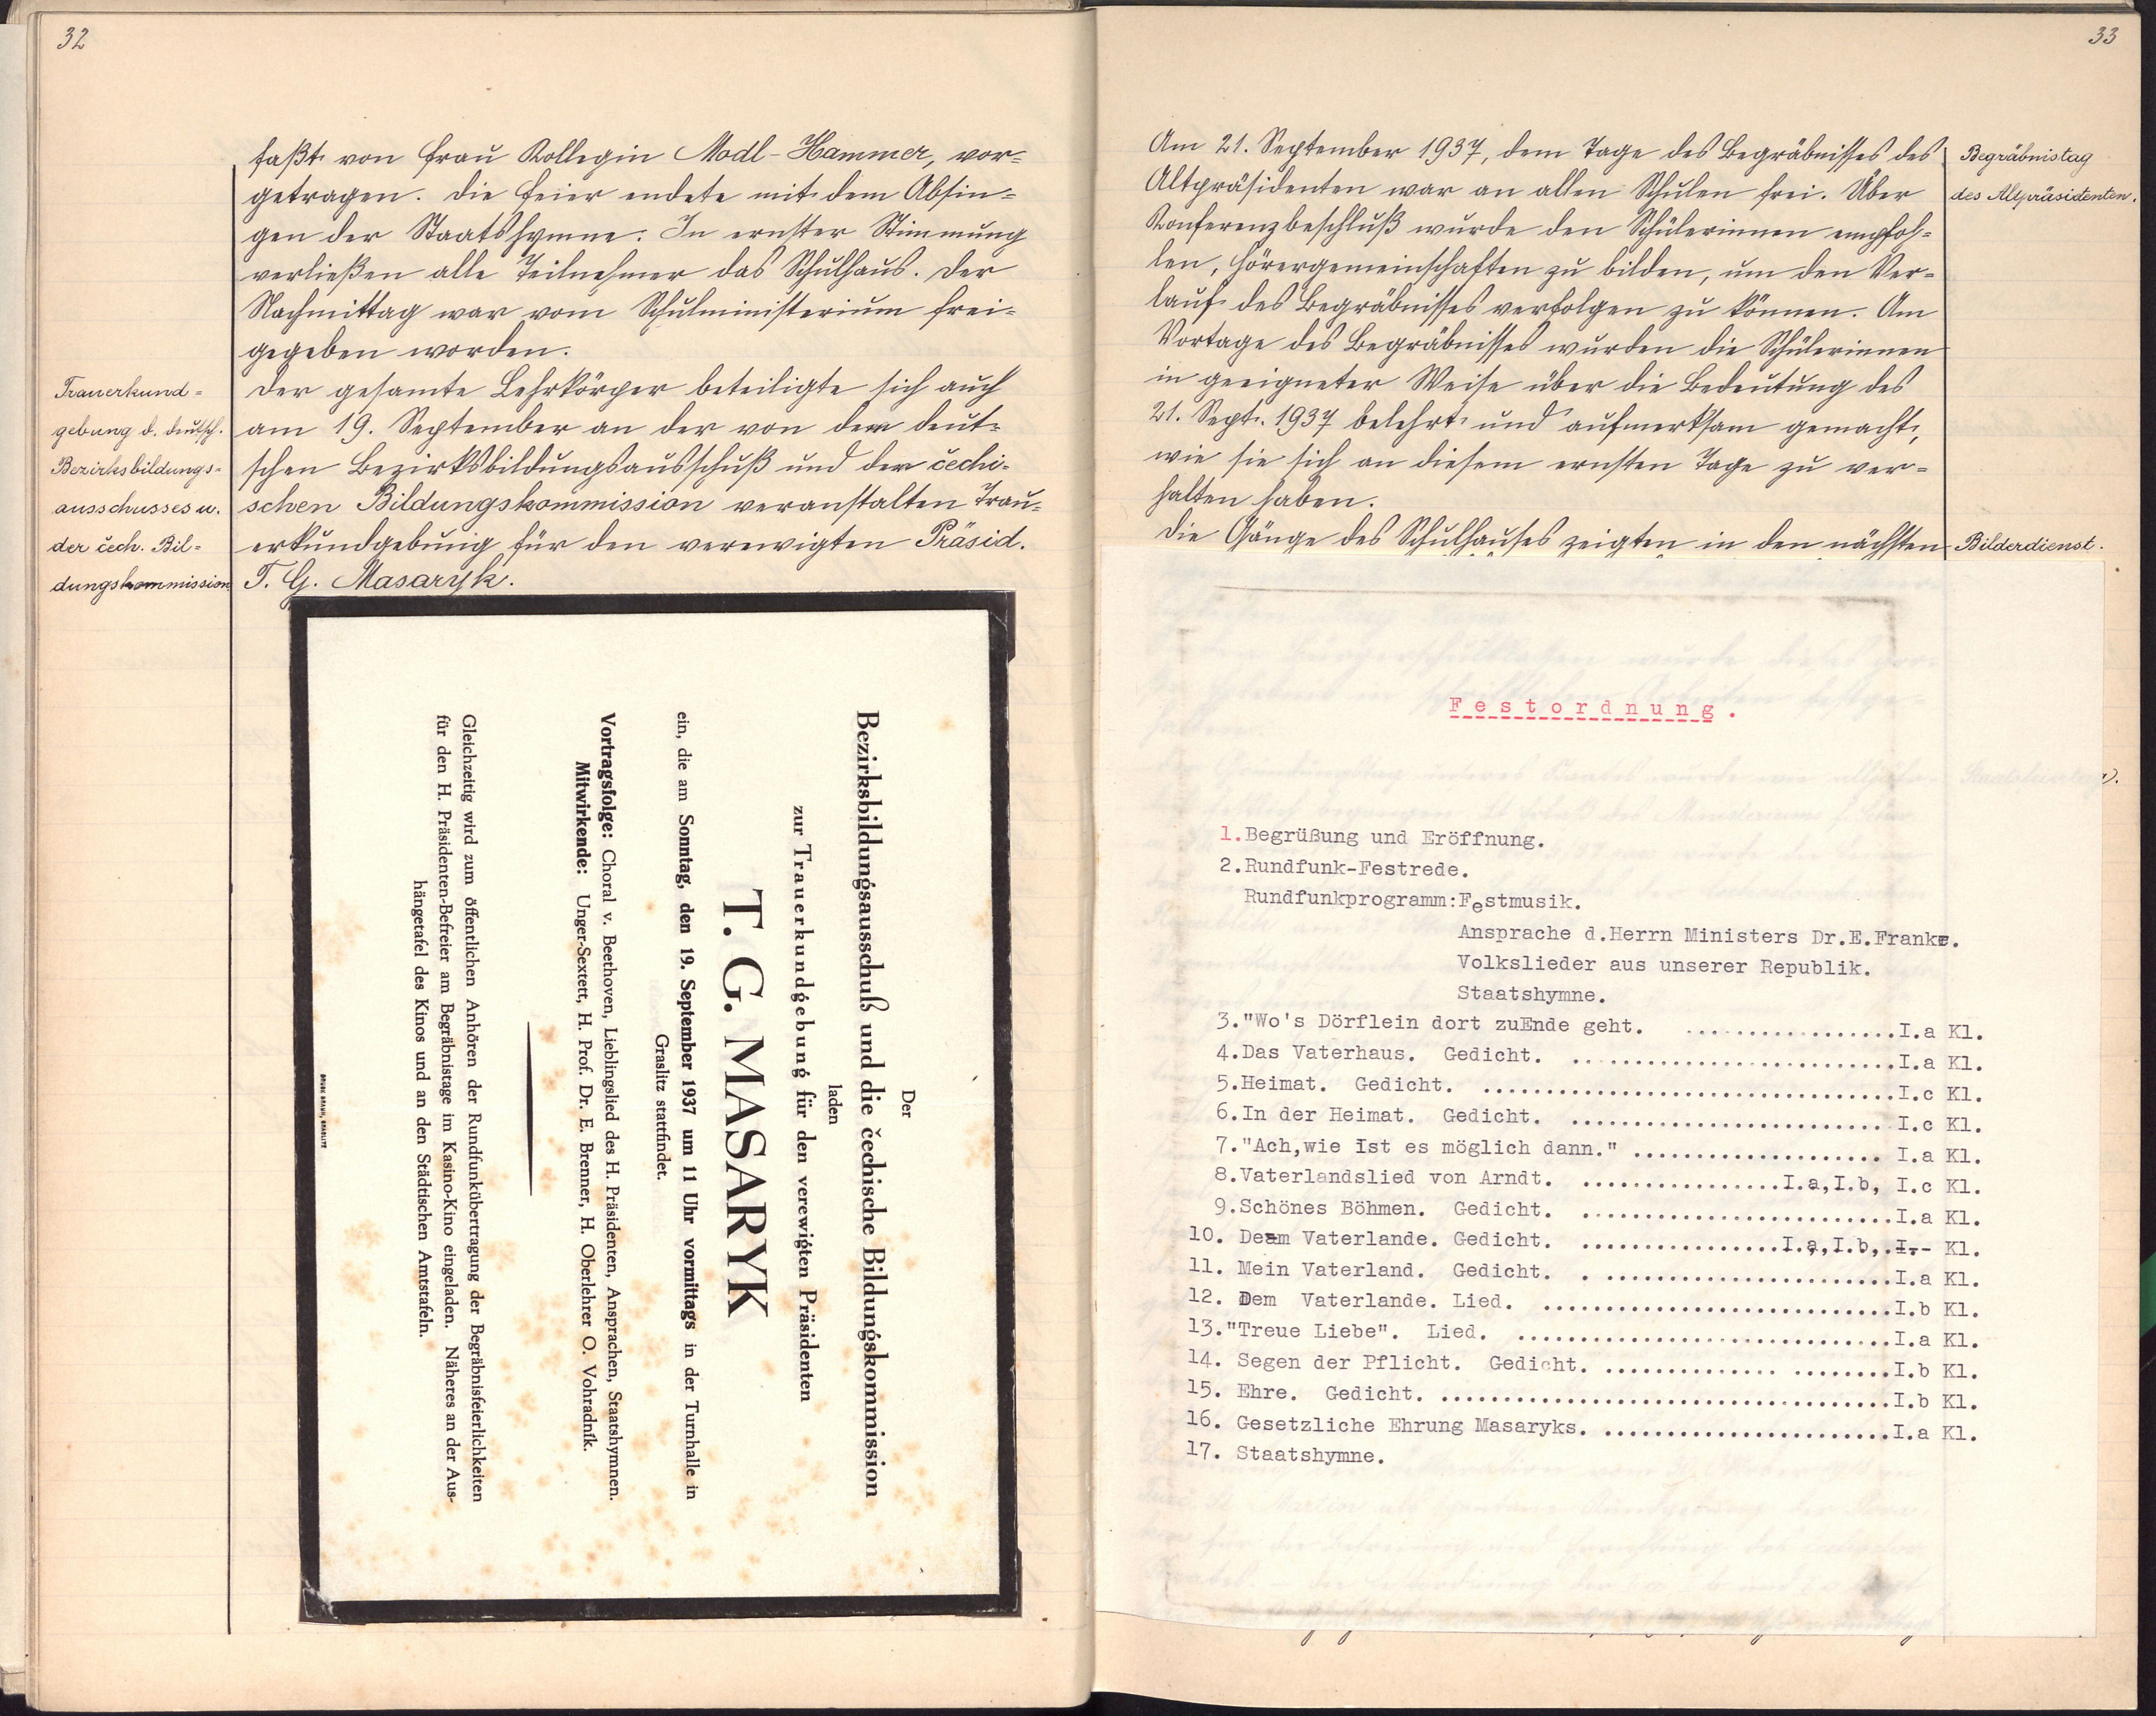 32
faßt von Frau Kollegin Modl-Hammer, vor=
getragen. Die Feier endete mit dem Absin=
gen der Staatshymne. In ernster Stimmung
verließen alle Teilnehmer das Schulhaus. Der
Nachmittag war vom Schulministerium frei=
gegeben worden.
Trauerkund=
gebung d. deutsch.
Bezirksbildungs=
ausschusses u.
der čech. Bil=
dungskommission
Der gesamte Lehrkörper beteiligte sich auch
am 19. September an der von dem deut=
schen Bezirksbildungsausschuß und der čechi=
schen Bildungskommission veranstalten Trau=
erkundgebung für den verewigten Präsid.
T. G. Masaryk.
Der
Bezirksbildungsausschuß und die čechische Bildungskommission
laden
zur Trauerkundgebung für den verewigten Präsidenten
T. G. MASARYK
ein, die am Sonntag, den 19. September 1937 um 11 Uhr vormittags in der Turnhalle in
Graslitz stattfindet.
Vortragsfolge: Choral v. Beethoven, Lieblingslied des H. Präsidenten, Ansprachen, Staatshymnen.
Mitwirkende: Unger-Sextett, H. Prof. Dr. E. Brenner, H. Oberlehrer O. Vohradník.
Gleichzeitig wird zum öffentlichen Anhören der Rundfunkübertragung der Begräbnisfeierlichkeiten
für den H. Präsidenten-Befreier am Begräbnistage im Kasino-Kino eingeladen. Näheres an der Aus-
hängetafel des Kinos und an den Städtischen Amtstafeln.
DRUCK BRAUN, GRASLITZ
33
Am 21. September 1937, dem Tage des Begräbnisses des
Altpräsidenten war an allen Schulen frei. Über
Konferenzbeschluß wurde den Schülerinnen empfoh=
len, Hörergemeinschaften zu bilden, um den Ver=
lauf des Begräbnisses verfolgen zu können. Am
Vortage des Begräbnisses wurden die Schülerinnen
in geeigneter Weise über die Bedeutung des
21. Sept. 1937 belehrt und aufmerksam gemacht,
wie sie sich an diesem ernsten Tage zu ver=
halten haben.
Die Gänge des Schulhauses zeigten in den nächsten
Begräbnistag
des Altpräsidenten.
Bilderdienst.
Festordnung.
1.Begrüßung und Eröffnung.
2.Rundfunk-Festrede.
Rundfunkprogramm:Festmusik.
Ansprache d.Herrn Ministers Dr.E.Franke.
Volkslieder aus unserer Republik.
Staatshymne.
3."Wo's Dörflein dort zuEnde geht. .....................I.a Kl.
4.Das Vaterhaus. Gedicht. ................................I.a Kl.
5.Heimat. Gedicht. .........................................I.c Kl.
6.In der Heimat. Gedicht. ............................... I.c Kl.
7."Ach,wie Ist es möglich dann." ......................... I.a Kl.
8.Vaterlandslied von Arndt. ....................I.a,I.b, I.c Kl.
9.Schönes Böhmen. Gedicht. ...............................I.a Kl.
10. Dem Vaterlande. Gedicht. ....................I.a,I.b,.I.- Kl.
11. Mein Vaterland. Gedicht. . .............................I.a Kl.
12. Dem Vaterlande. Lied. ...................................I.b Kl.
13."Treue Liebe". Lied. .....................................I.a Kl.
14. Segen der Pflicht. Gedicht. .................. ..........I.b Kl.
15. Ehre. Gedicht. .............................................I.b Kl.
16. Gesetzliche Ehrung Masaryks. .............................I.a Kl.
17. Staatshymne.